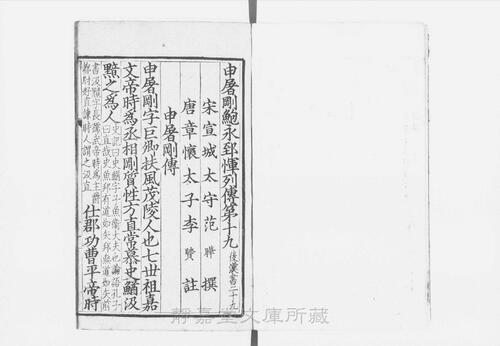 申屠剛鮑永郅惲列傳第十九 後漢書二十九
宋宣城太守范曄撰
唐章懷太子李賢註
申屠剛傳
申屠剛字巨卿扶風茂陵人也七世祖嘉
文帝時爲丞相剛質性方直常慕史鰌汲
黯之爲人 史記曰史鰌字子魚衛大夫也論語孔子曰直哉史魚邦有道如矢邦無道如矢前
書汲黯字長孺武帝時爲主爵都尉好直諫時人謂之汲直 仕郡功曹平帝時
静嘉堂文庫所蔵